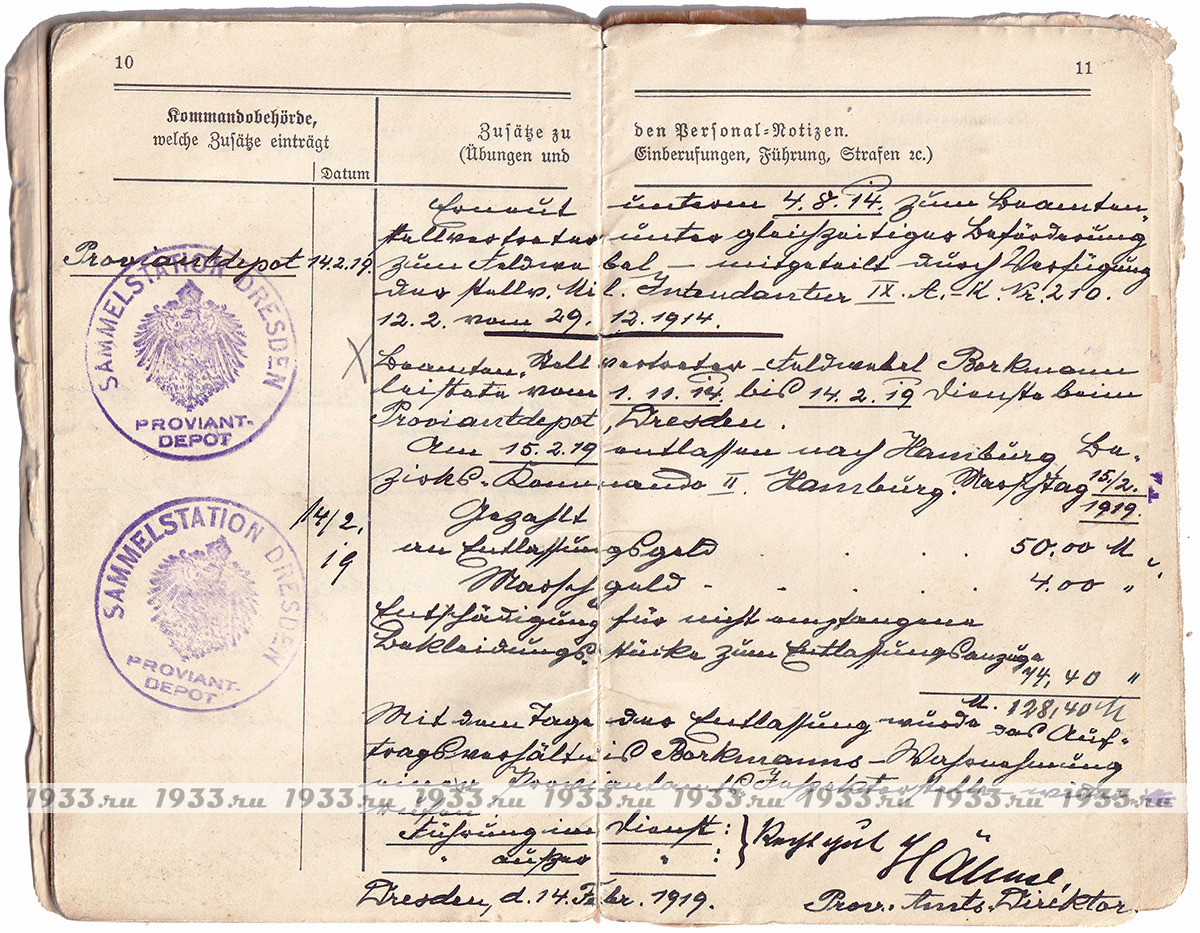 10
11
Kommandobehörde,
welche Zusätze einträgt
Datum
Zusätze zu den Personal-Notizen.
(Übungen und Einberufungen, Führung, Strafen ꝛc.)
Proviantdepot 14.2.19
SAMMELSTATION DRESDEN
PROVIANT-
DEPOT
14/2.
19
SAMMELSTATION DRESDEN
PROVIANT-
DEPOT
Ernannt unterm 4.8.14. zum Beamten-
stellvertreter unter gleichzeitiger Beförderung
zum Feldwebel – mitgeteilt durch Verfügung
der stellv. Mil. Intendantur IX. A.-K. Nr. 210.
12.2. vom 29.12.1914.
Beamten-Stellvertreter-Feldwebel Borkmann
leistete vom 1.11.14. bis 14.2.19 Dienste beim
Proviantdepot, Dresden.
Am 15.2.19 entlassen nach Hamburg, Be-
zirks-Kommando II. Hamburg. Marschtag 15/2.
1919.
Gezahlt
an Entlassungsgeld . . . . 50.00 M
Marschgeld . . . . 4.00 "
Entschädigung für nicht empfangene
Bekleidungsstücke zum Entlassungsanzuge
74,40 "
M. 128,40 M
Mit dem Tage der Entlassung wurde das Auf-
tragsverhältnis Borkmanns – Wahrnehmung
einer Proviantamts-Inspektorstelle –
1933.ru 1933.ru 1933.ru 1933.ru 1933.ru 1933.ru 1933.ru 1933.ru 1933.ru
Führung im Dienst: } Recht gut
" außer " :
Dresden, d. 14. Febr. 1919.
Prov.-Amts-Direktor.